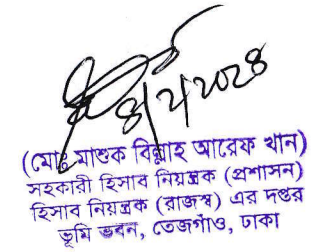 ৪/২/২০২৪
(মোঃ মাশুক বিল্লাহ আরেফ খান)
সহকারী হিসাব নিয়ন্ত্রক (প্রশাসন)
হিসাব নিয়ন্ত্রক (রাজস্ব) এর দপ্তর
ভূমি ভবন, তেজগাঁও, ঢাকা